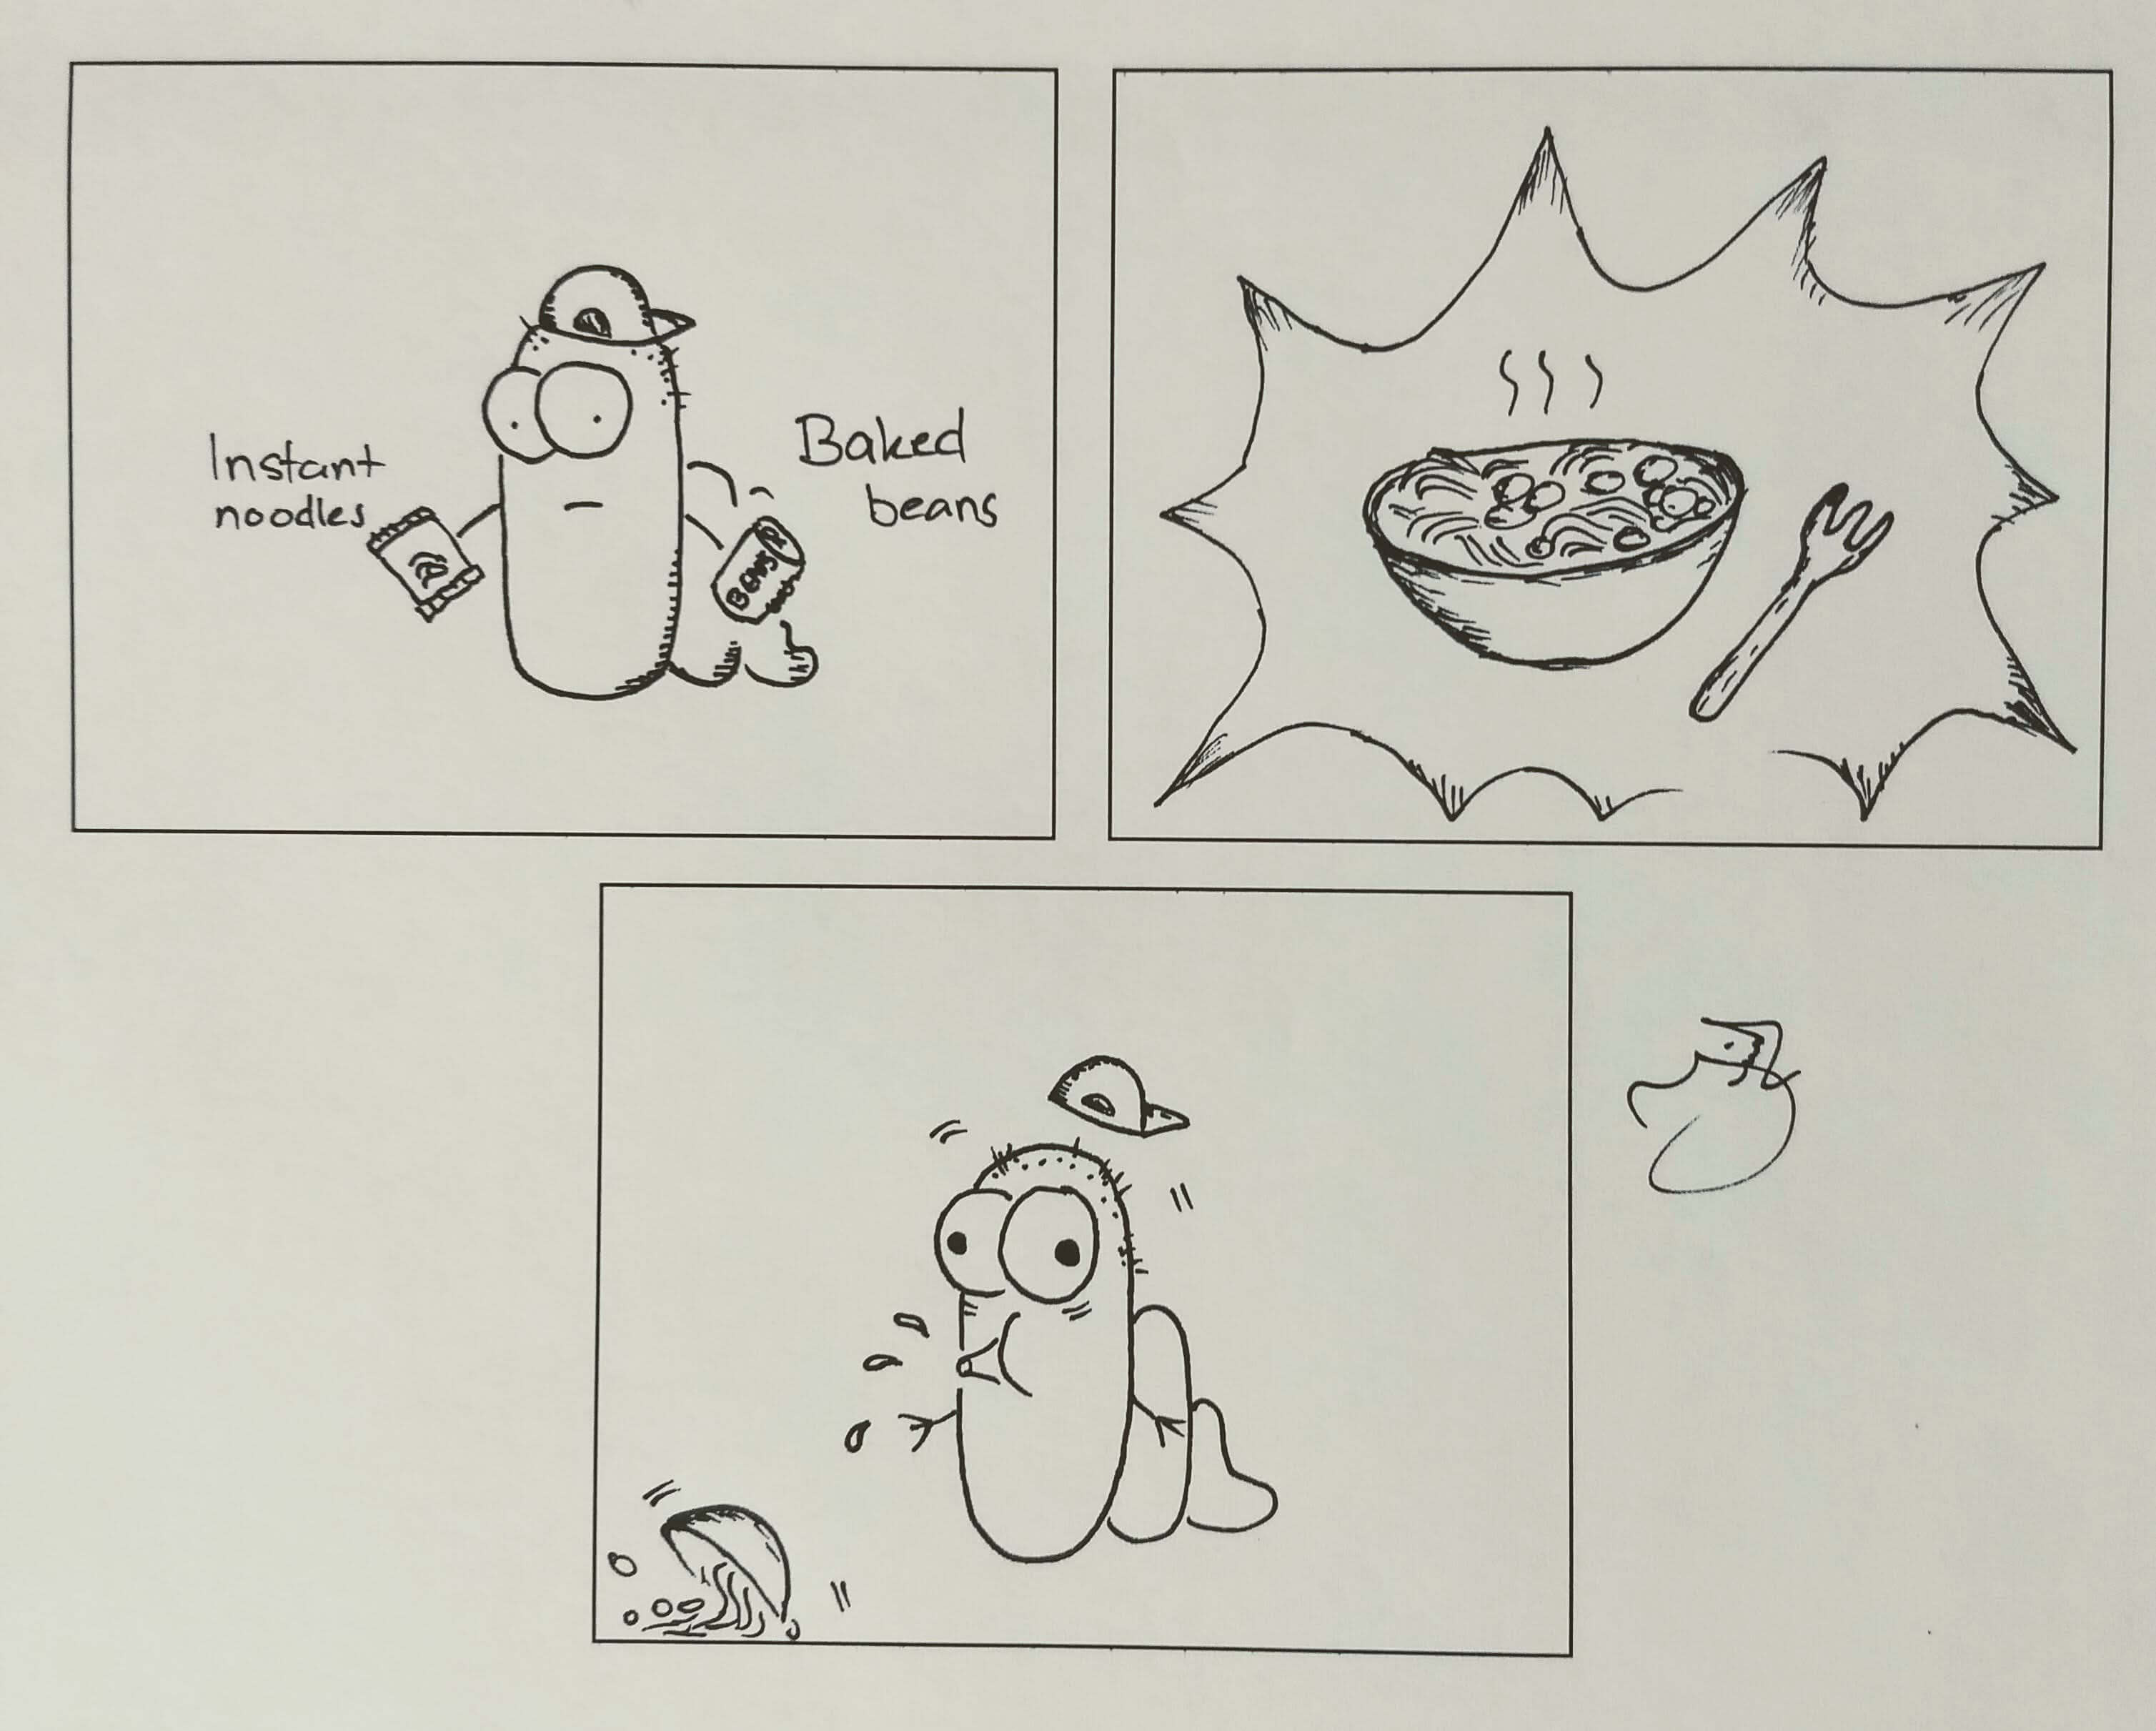 Instant
noodles
Baked
beans
BEANS